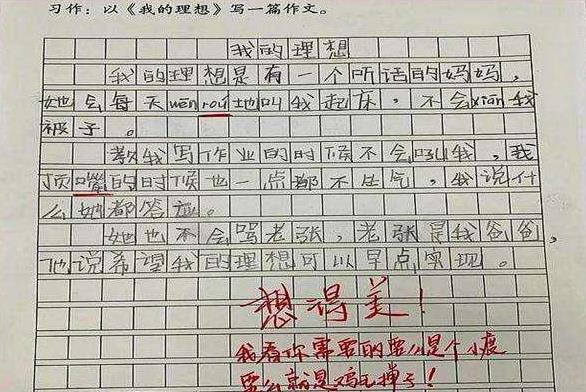 习作：以《我的理想》写一篇作文。
我的理想
我的理想是有一个听话的妈妈，
她会每天wēn rou地叫我起床，不会xiān我
被子。
教我写作业的时候不会吼我，我
顶嘴的时候也一点都不生气，我说什
么她都答应。
她也不会骂老张，老张是我爸爸，
他说希望我的理想可以早点实现。
想得美！
我看你需要的要么是个小度
要么就是鸡毛掸子！